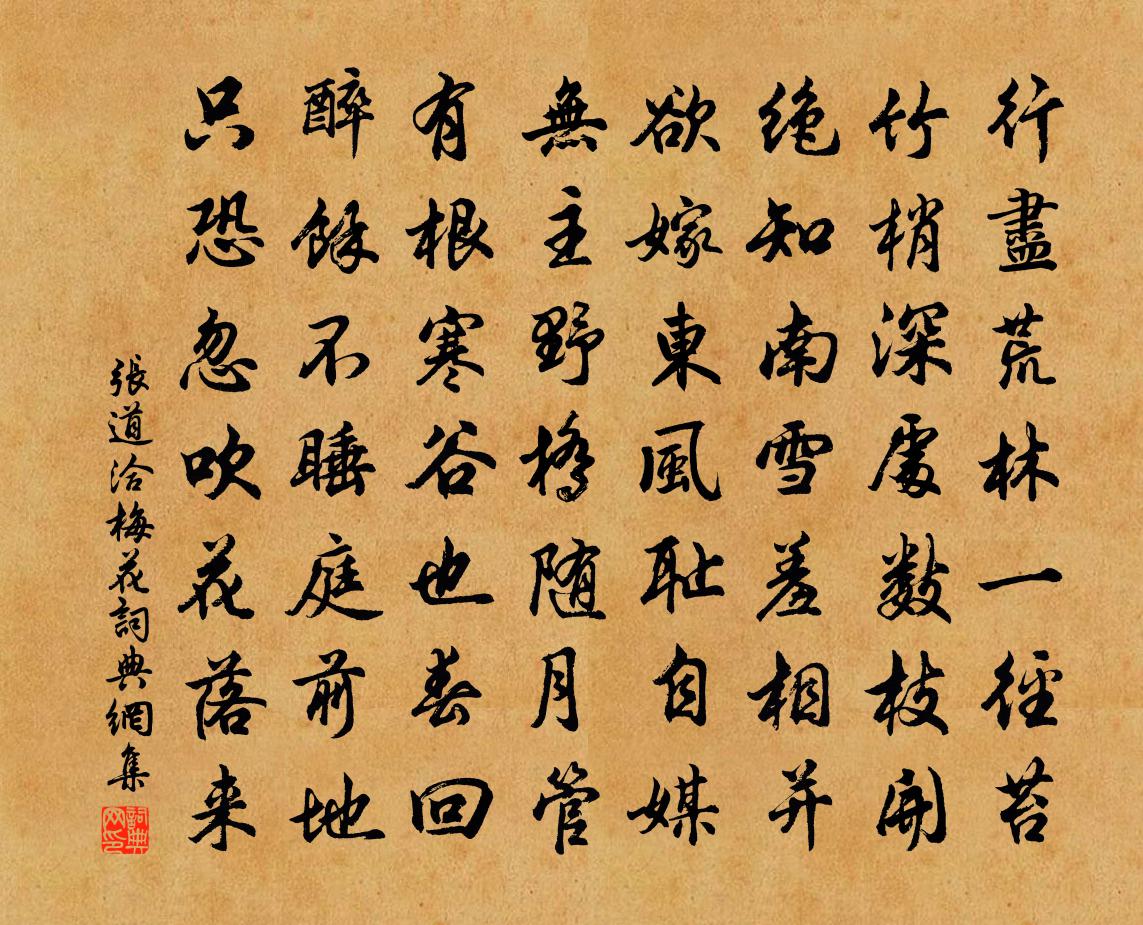 行盡荒林一徑苔
竹梢深處數枝開
絕知南雪羞相并
欲嫁東風恥自媒
無主野橋隨月管
有根寒谷也春回
醉餘不睡庭前地
只恐忽吹花落來
張道洽梅花詞典網集
詞典网印